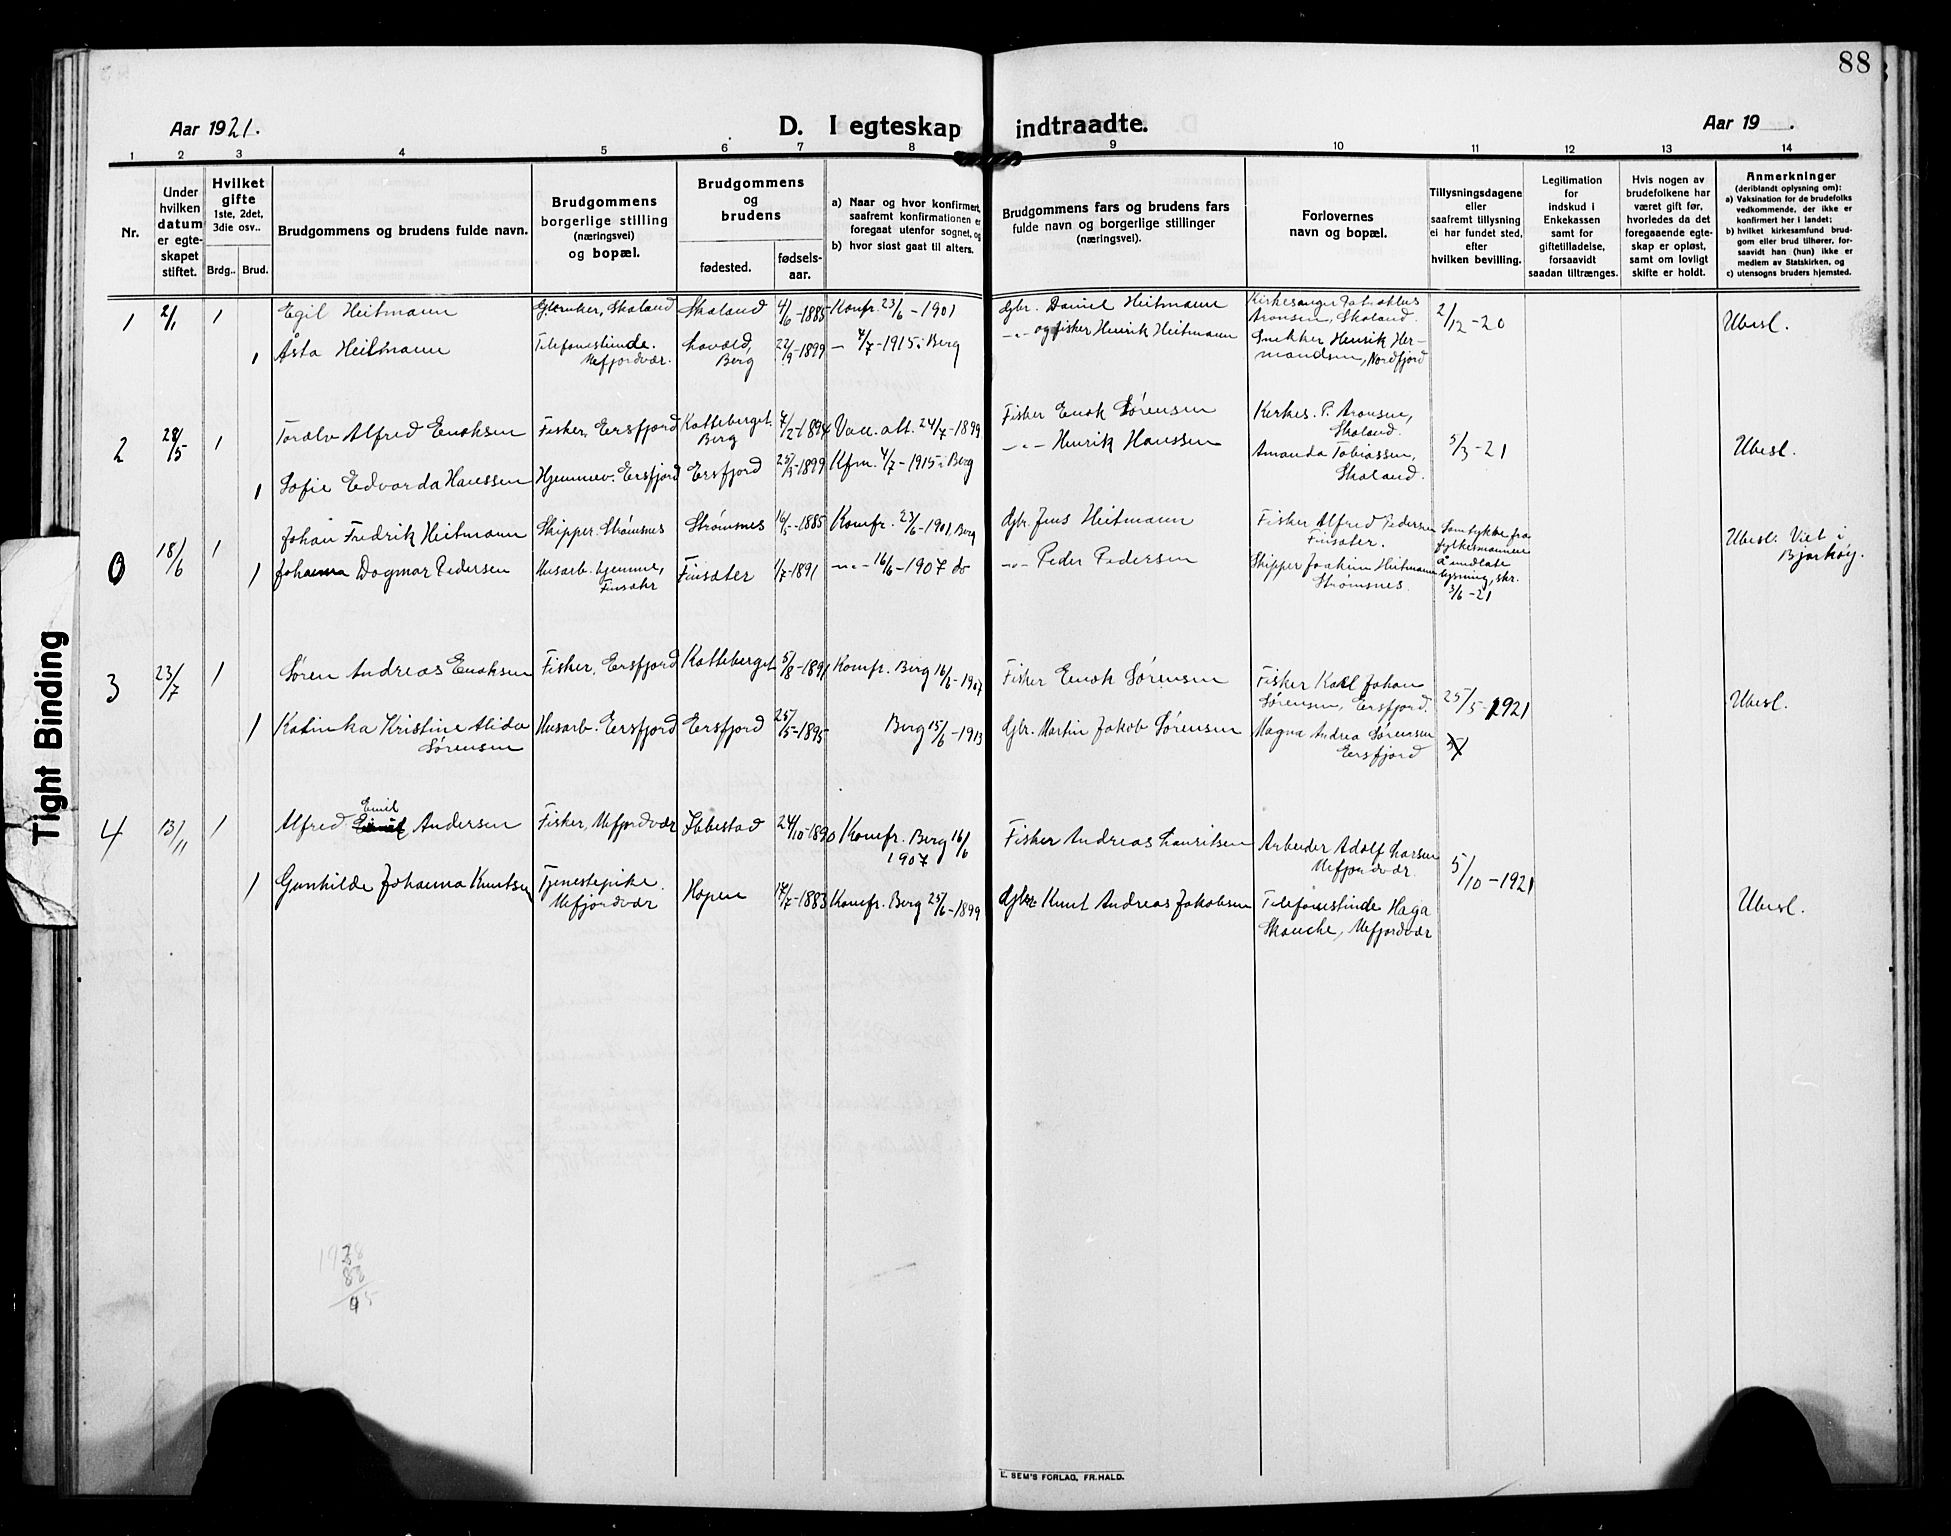 88
Aar 1921.
D. I egteskap indtraadte.
Aar 19 .
1 2 3 4 5 6 7 8 9 10 11 12 13 14
Nr.
Under hvilken datum er egte-skapet stiftet.
Hvilket gifte 1ste, 2det, 3die osv..
Brdg.. Brud.
Brudgommens og brudens fulde navn.
Brudgommens borgerlige stilling (næringsvei) og bopæl.
Brudgommens og brudens
fødested.
fødsels-aar.
a) Naar og hvor konfirmert, saafremt konfirmationen er foregaat utenfor sognet, og
b) hvor sidst gaat til alters.
Brudgommens fars og brudens fars fulde navn og borgerlige stillinger (næringsvei).
Forlovernes navn og bopæl.
Tillysningsdagene eller saafremt tillysning ei har fundet sted, efter hvilken bevilling.
Legitimation for indskud i Enkekassen samt for giftetilladelse, forsaavidt saadan tiltrænges.
Hvis nogen av brudefolkene har været gift før, hvorledes da det foregaaende egte-skap er opløst, samt om lovligt skifte er holdt.
Anmerkninger (deriblandt oplysning om):
a) Vaksination for de brudefolks vedkommende, der ikke er konfirmert her i landet;
b) hvilket kirkesamfund brud-gom eller brud tilhører, for-saavidt han (hun) ikke er medlem av Statskirken, og
c) utensogns bruders hjemsted.
1 2/1 1 Egil Heitmann Skaland Skaland 4/6-1885 Konfr. 23/6-1901 Gbr. Daniel Heitmann Kirkesanger Aronsen, Skaland. 2/12-20 Ubesl.
1 Åsta Heitmann Telefonestinde. Mefjordvær. Berg 22/9-1899 — 4/7-1915 i Berg -"- og fisker Henrik Heitmann Snekker Henrik Her-mandsen, Nordfjord
2 28/5 1 Toralv Alfred Enoksen Fisker, Ersfjord Katteberget. Berg 7/2-1894 Vacc. att. 24/7-1899 Fisker Enok Sørensen Kirkes. P. Aronsen, Skaland. 5/3-21 Ubesl.
1 Sofie Edvarda Hanssen Hjemmev. Ersfjord Ersfjord 1899 Kfm. 4/7-1915 i Berg -"- Henrik Hanssen Amanda Tobiassen, Skaland.
0 18/6 1 Johan Fredrik Heitmann Skipper. Strømsnes Strømsnes 16/5-1885 Konfr. 23/6-1901 Berg Gbr. Jens Heitmann Fisker Alfred Pedersen Finsæter. Samtykke fra fylkesmannen å undlate lysning, skr. 3/6-21 Ubesl. Viet i Bjarkøy.
1 Johanna Dagmar Pedersen Husarb. hjemme, Finsæter Finsæter 1/7-1891 -"- 16/6-1907 do -"- Peder Pedersen Skipper Joakim Heitmann Strømsnes.
3 23/7 1 Søren Andreas Enoksen Fisker, Ersfjord Katteberget 5/8-1891 Konfr. Berg 16/6-1907 Fisker Enok Sørensen Fisker Karl Johan Sørensen, Ersfjord. 25/5-1921 Ubesl.
1 Katinka Kristine Alida Sørensen Husarb. Ersfjord Ersfjord 25/5-1895 Berg 15/6-1913 Gbr. Martin Jakob Sørensen Magna Andrea Sørensen Ersfjord
4 13/11 1 Alfred Emil Andersen Fisker, Mefjordvær Ibbestad 24/10-1890 Konfr. Berg 16/6 1907 Fisker Andreas Lauritsen Arbeider Adolf Larsen Mefjordvær. 5/10-1921 Ubesl.
1 Gunhilde Johanna Knutsen Tjenestepike. Mefjordvær Hopen 17/7-1883 Konfr. Berg 25/6-1899 Gbr Knut Andreas Jakobsen Telefonestinde Haga Skanche, Mefjordvær
88
L. SEM'S FORLAG, FR. HALD.
Tight Binding